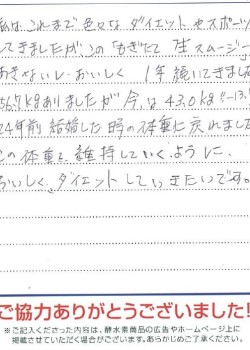 私は、これまで色々なダイエットやスポーツ
してきましたが、この「もぎたて生スムージー
あきないし、おいしく 1年続いてきました
kgありましたが今は43.0kg
24年前 結婚した時の体重に戻れました
この体重を維持していくように、
おいしくダイエットしていきたいです。
ご協力ありがとうございました!
※ご記入くださった内容は、酵水素商品の広告やホームページ上に
掲載させていただく場合がございます。あらかじめご了承ください。